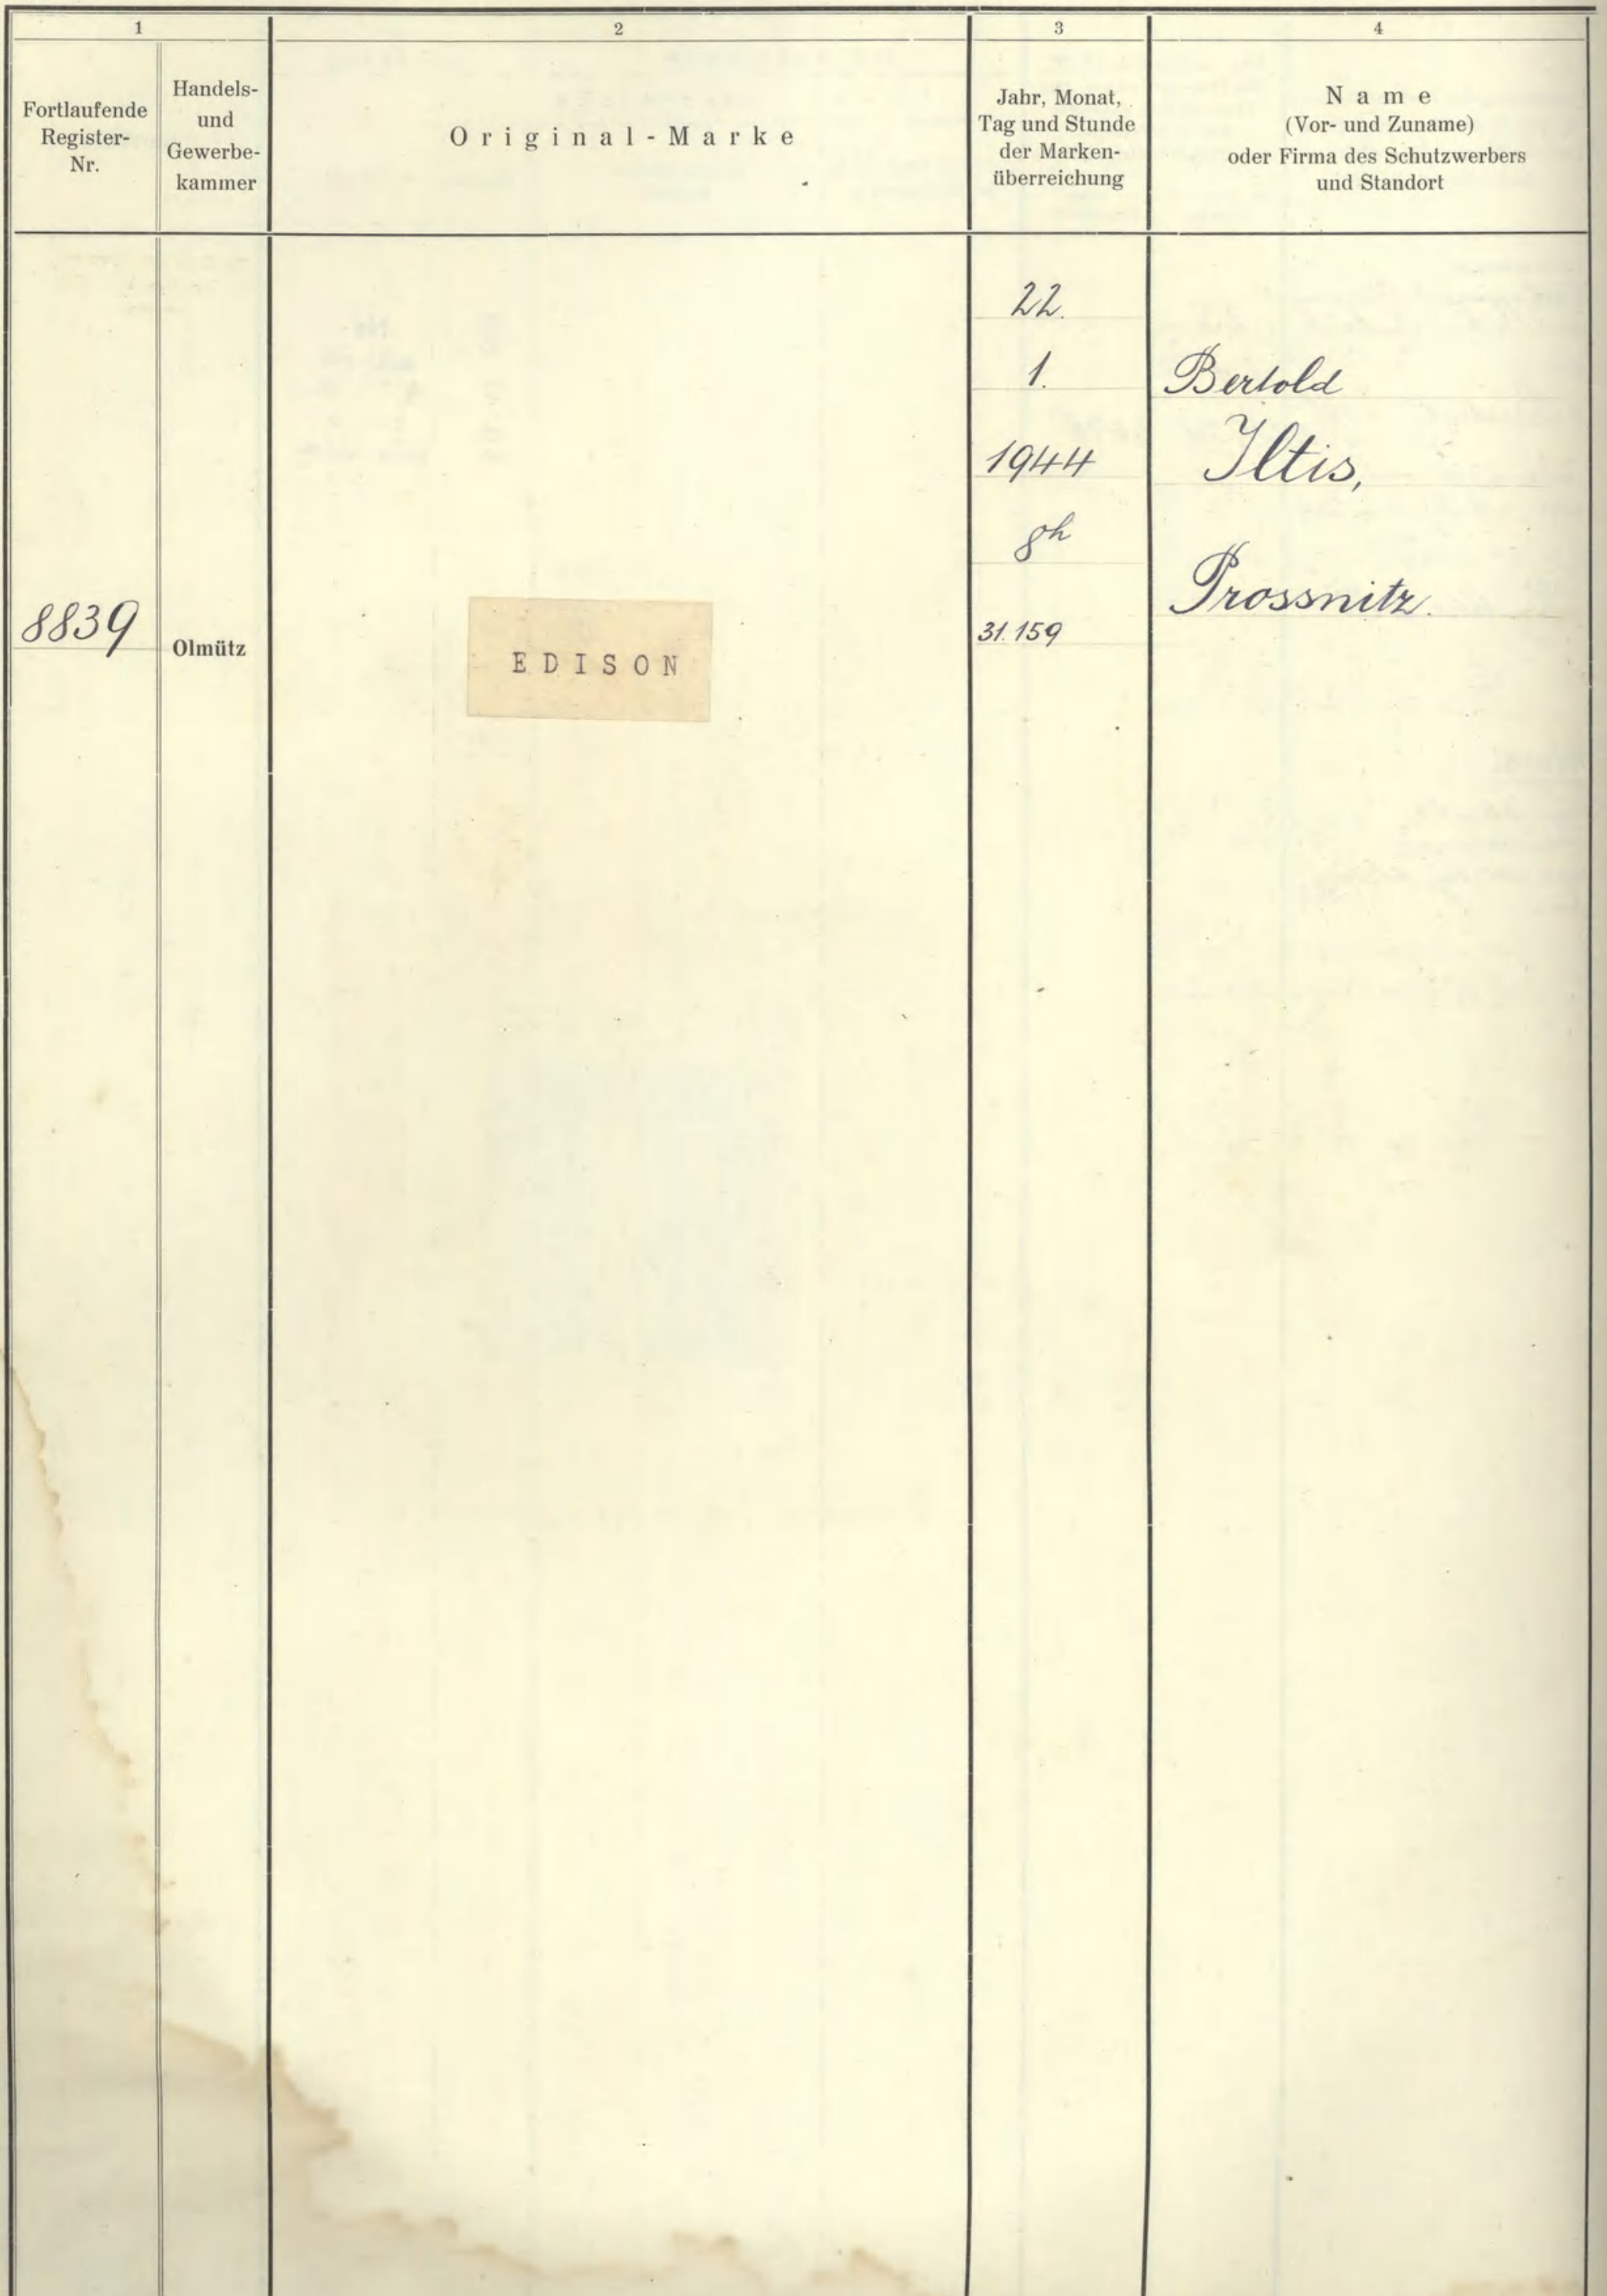 1
2
3
4
Fortlaufende
Register-
Nr.
Handels-
und
Gewerbe-
kammer
Original-Marke
Jahr, Monat,
Tag und Stunde
der Marken-
überreichung
Name
(Vor- und Zuname)
oder Firma des Schutzwerbers
und Standort
8839
Olmütz
EDISON
22.
1.
1944
8h
31.159
Bertold
Iltis,
Prossnitz.